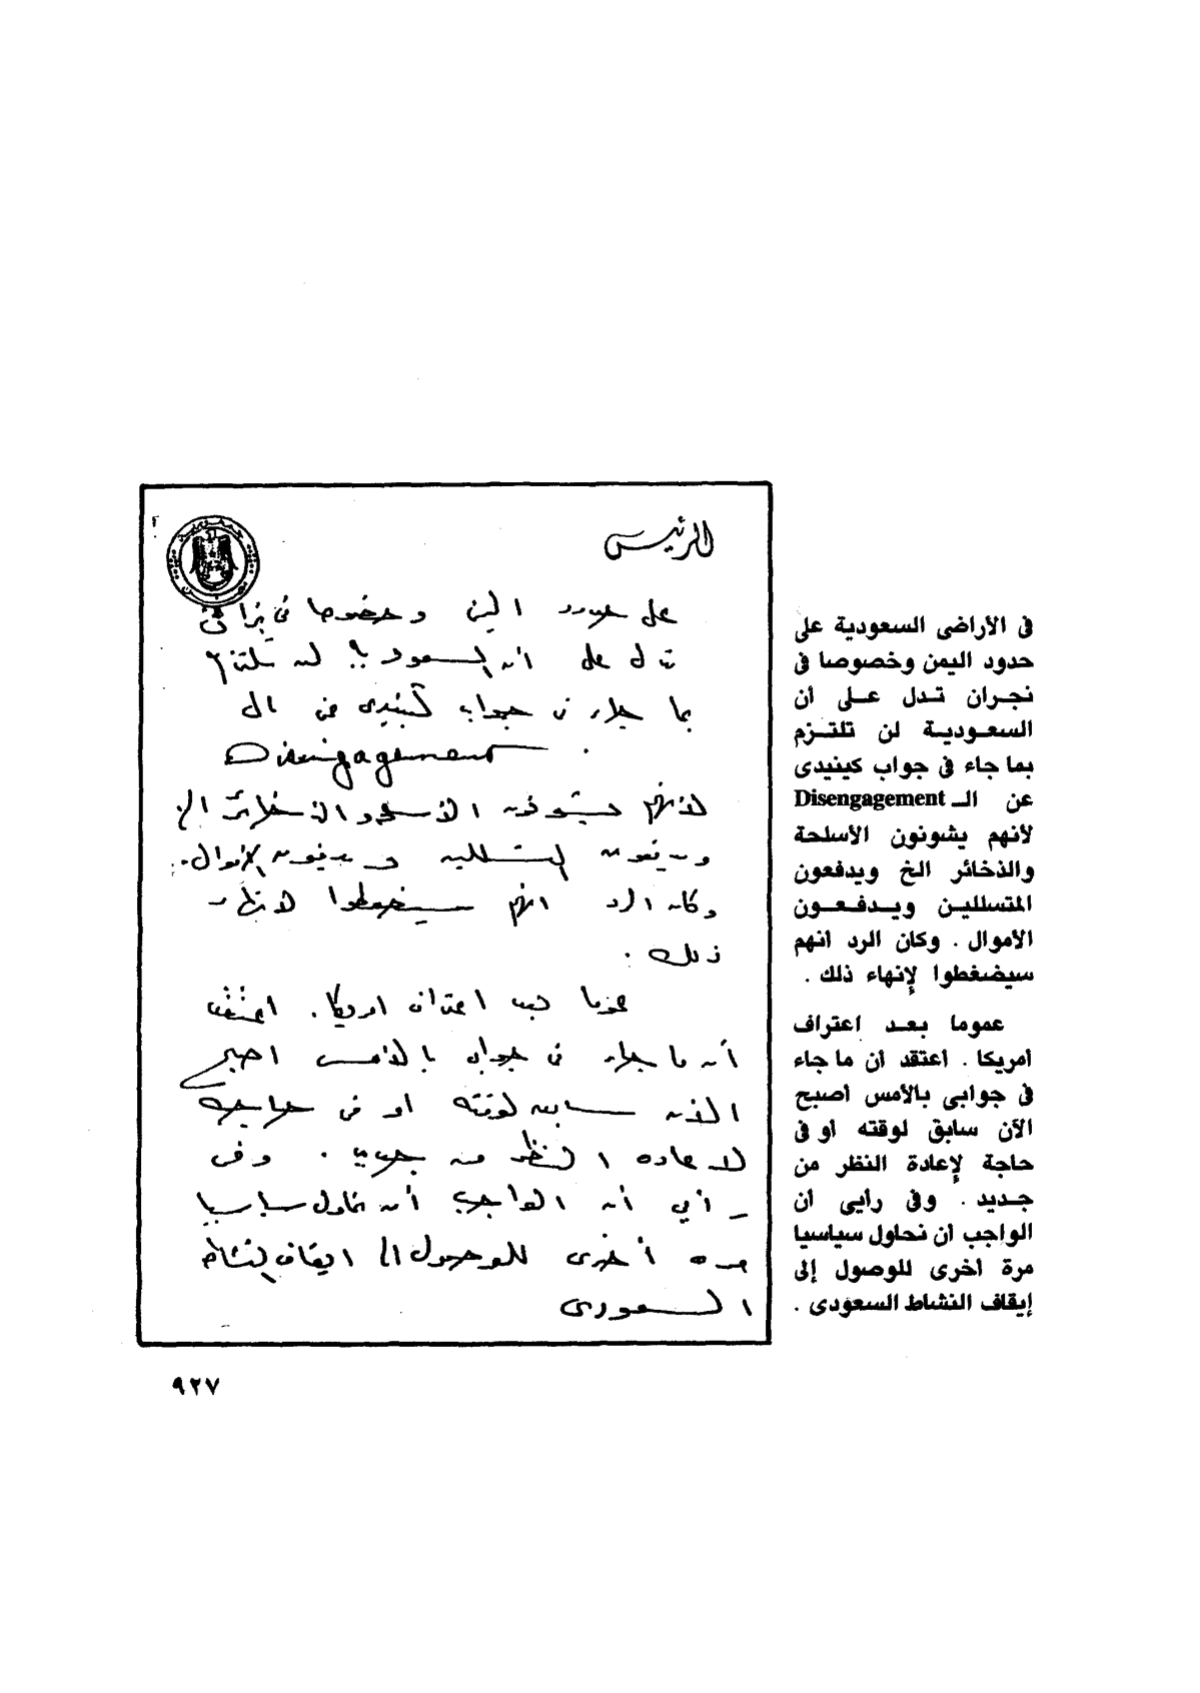 الرئيس
على حدود اليمن وخصوصا فى نجران
تدل على أن السعودية لن تلتزم
بما جاء فى جواب كنيدى عن ال
Disengagement .
لأنهم يشونون الأسلحة والذخائر الخ
ويدفعون المتسللين ويدفعون الأموال .
وكان الرد انهم سيضغطوا لانهاء
ذلك .
عموما بعد اعتراف امريكا . اعتقد
أن ما جاء فى جوابى بالأمس اصبح
الآن سابق لوقته او فى حاجة
لاعادة النظر من جديد . وفى
رأيي أن الواجب أن نحاول سياسيا
مرة أخرى للوصول الى ايقاف النشاط
السعودى
فى الأراضى السعودية على
حدود اليمن وخصوصا فى
نجران تدل على أن
السعودية لن تلتزم
بما جاء فى جواب كينيدى
عن الـ Disengagement
لأنهم يشونون الأسلحة
والذخائر الخ ويدفعون
المتسللين ويدفعون
الأموال . وكان الرد انهم
سيضغطوا لإنهاء ذلك .
عموما بعد اعتراف
امريكا . اعتقد أن ما جاء
فى جوابى بالأمس أصبح
الآن سابق لوقته أو فى
حاجة لإعادة النظر من
جديد . وفى رأيى أن
الواجب أن نحاول سياسيا
مرة أخرى للوصول إلى
إيقاف النشاط السعودى .
٩٢٧